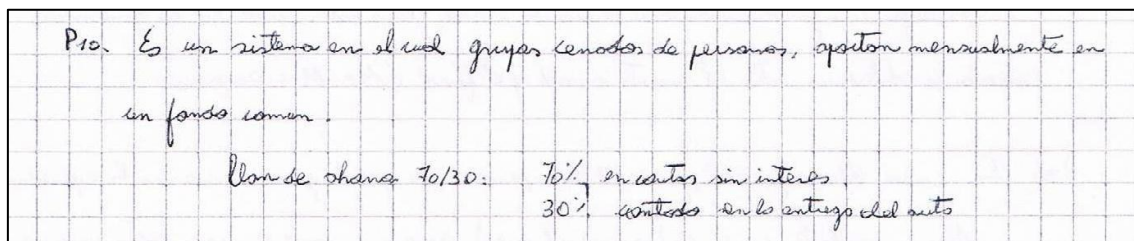 P10. Es un sistema en el cual grupos cerrados de personas, aportan mensualmente en
un fondo comun.
Plan de ahorro 70/30: 70% en cuotas sin interes.
30% contado en la entrega del auto